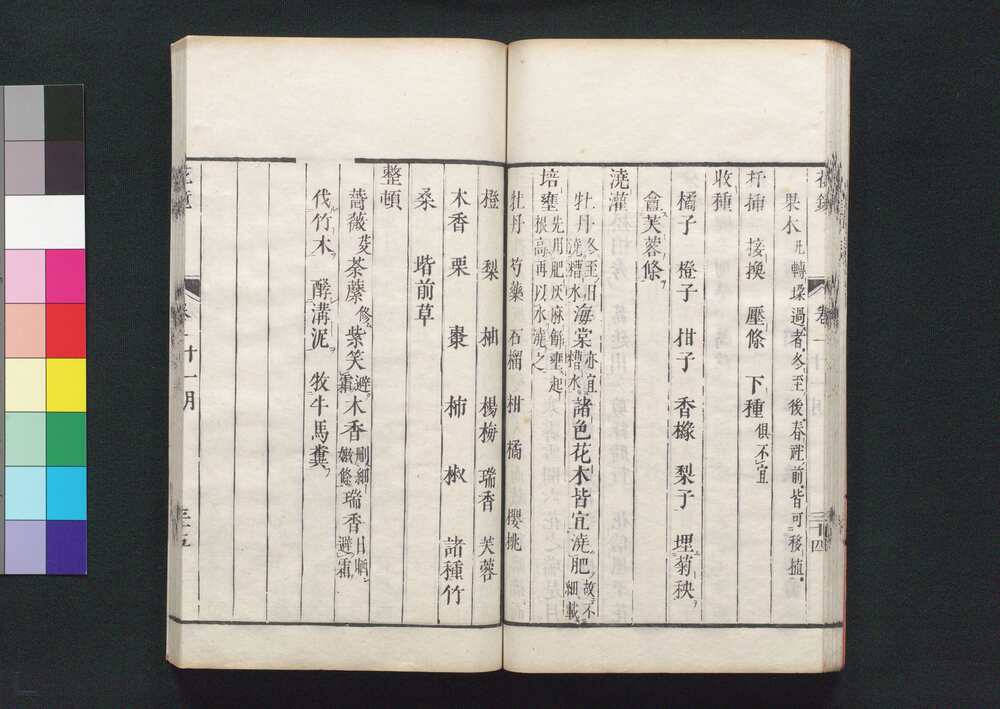 果木凡轉垜過者冬至後春社前皆可移植
扦插 接換 壓條 下種俱不宜
收種
橘子 橙子 柑子 香櫞 梨子 埋菊秧
會芙蓉條
澆灌
牡丹冬至日澆糟水海棠亦宜糟水諸色花木皆宜澆肥故不細載
培壅先用肥灰麻餅壅起根高再以水澆之
牡丹 芍藥 石榴 柑 橘 櫻桃
橙 梨 柚 楊梅 瑞香 芙蓉
木香 栗 棗 柿 椒 諸種竹
桑 堦前草
整頓
薔薇芟荼蘼修紫笑避霜木香刪細嫩條瑞香日晒避霜
伐竹木 酵溝泥 牧牛馬糞
卷一 十一月 三十五
卷一 三十四